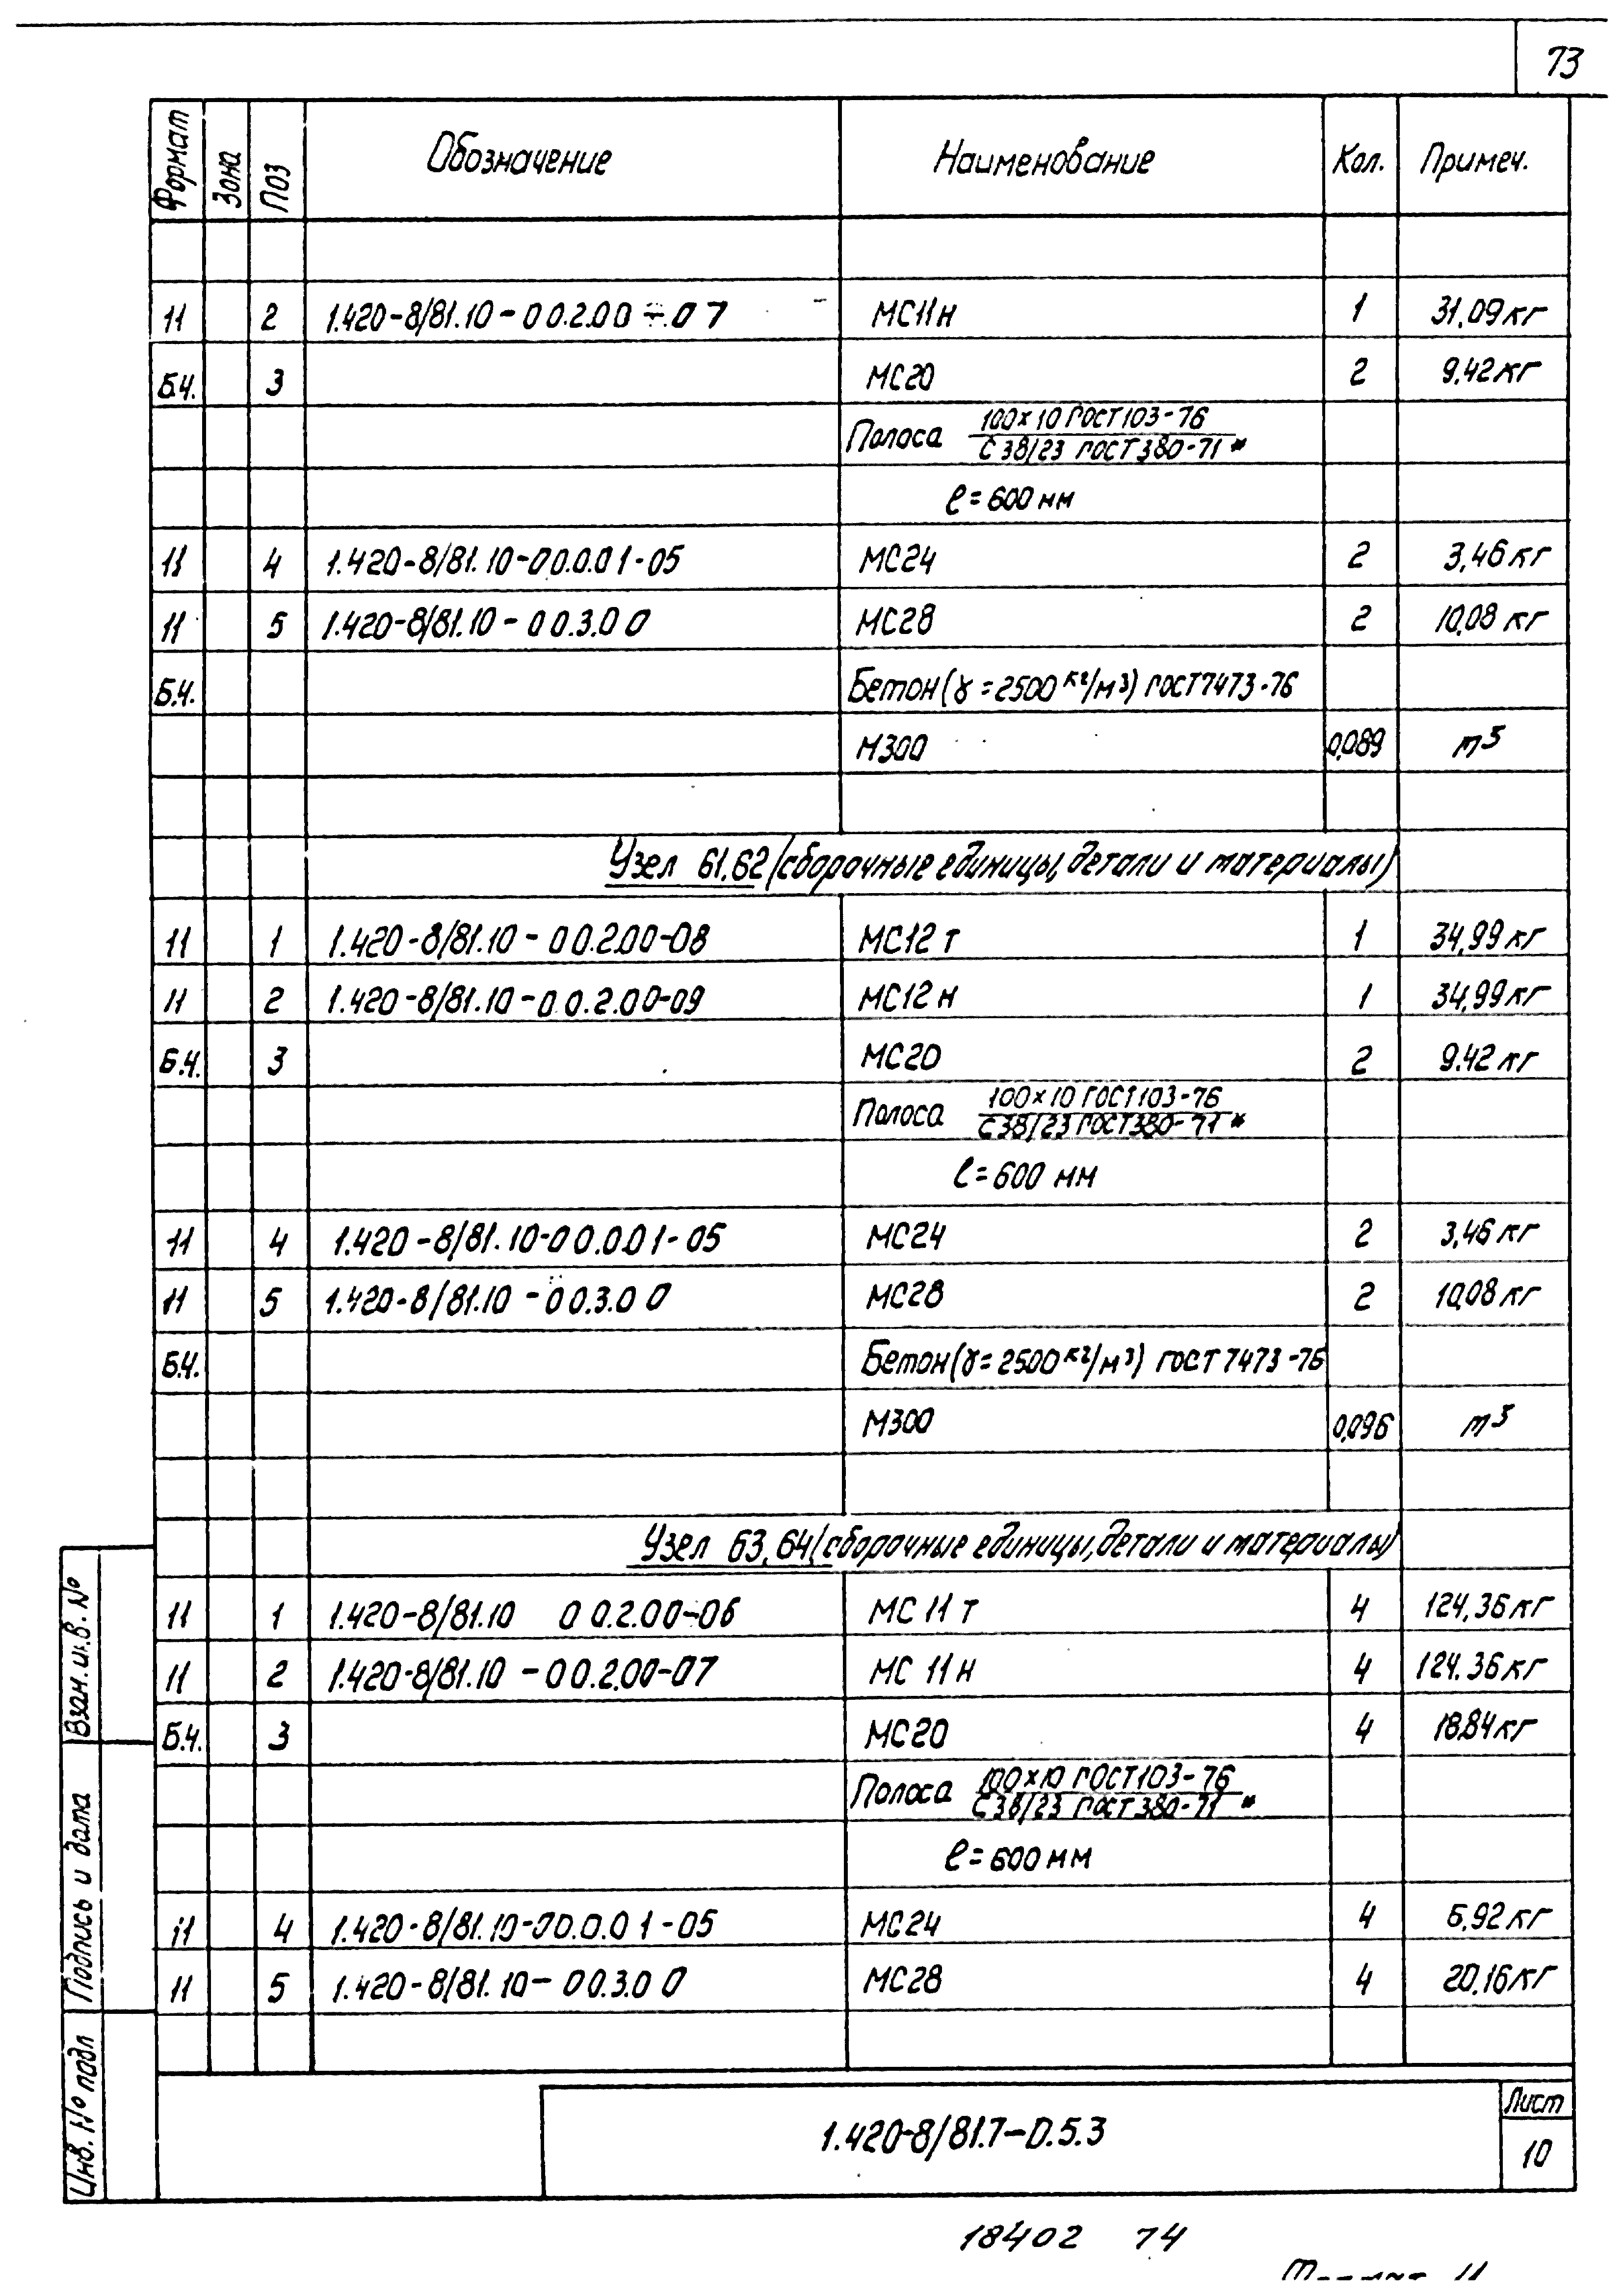 73
Формат Зона Поз Обозначение Наименование Кол. Примеч.
11 2 1.420-8/81.10-00.2.00-07 МС11н 1 31,09кг
Б.Ч. 3 МС20 2 9,42кг
Полоса 100×10 ГОСТ103-76
С38/23 ГОСТ380-71*
ℓ=600 мм
11 4 1.420-8/81.10-00.0.01-05 МС24 2 3,46кг
11 5 1.420-8/81.10-00.3.00 МС28 2 10,08 кг
Б.Ч. Бетон(γ=2500 кг/м³) ГОСТ7473-76
М300 0,089 m³
Узел 61,62(сборочные единицы,детали и материалы)
11 1 1.420-8/81.10-00.2.00-08 МС12т 1 34,99кг
11 2 1.420-8/81.10-00.2.00-09 МС12н 1 34,99кг
Б.Ч. 3 МС20 2 9.42 кг
Полоса 100×10 ГОСТ103-76
С38/23 ГОСТ380-71*
ℓ=600 мм
11 4 1.420-8/81.10-00.0.01-05 МС24 2 3,46 кг
11 5 1.420-8/81.10-00.3.00 МС28 2 10,08 кг
Б.Ч. Бетон(γ=2500 кг/м³) ГОСТ7473-76
М300 0,096 m³
Узел 63,64(сборочные единицы,детали и материалы)
11 1 1.420-8/81.10 00.2.00-06 МС 11т 4 124,36кг
11 2 1.420-8/81.10-00.2.00-07 МС 11н 4 124.36кг
Б.Ч. 3 МС20 4 18,84кг
Полоса 100×10 ГОСТ103-76
С38/23 ГОСТ380-71*
ℓ=600 мм
11 4 1.420-8/81.10-00.0.01-05 МС24 4 6,92кг
11 5 1.420-8/81.10-00.3.00 МС28 4 20,16кг
Взам.инв.№
Подпись и дата
Инв.№ подл
1.420-8/81.7-0.5.3
Лист
10
18402 74